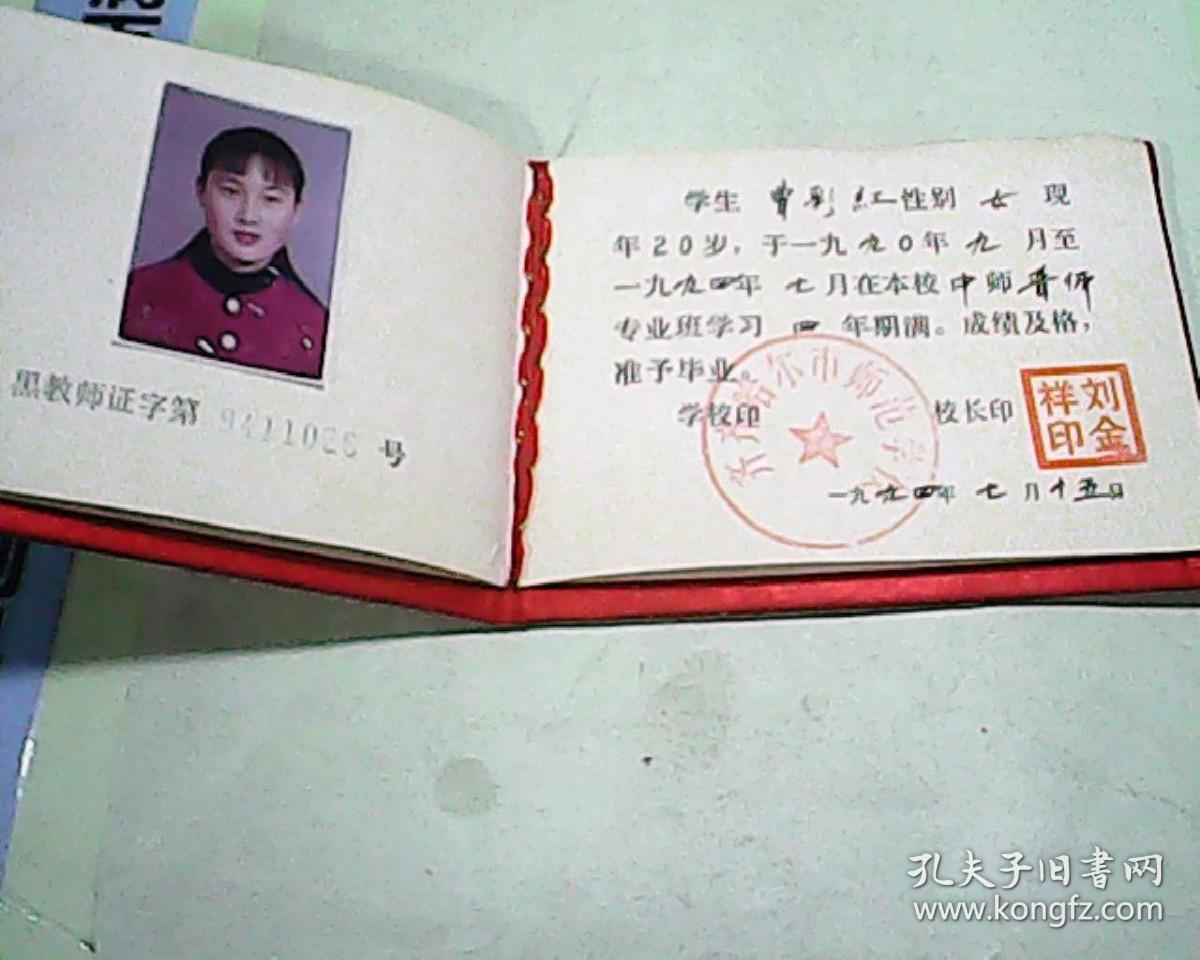 黑教师证字第 9411026 号
学生 曹彩红 性别 女 现
年20岁，于一九九0年九月至
一九九四年七月在本校中师普师
专业班学习 四 年期满。成绩及格，
准予毕业。
学校印
校长印
刘金祥印
齐齐哈尔市师范学校
一九九四年七月十五日
孔夫子旧书网
www.kongfz.com